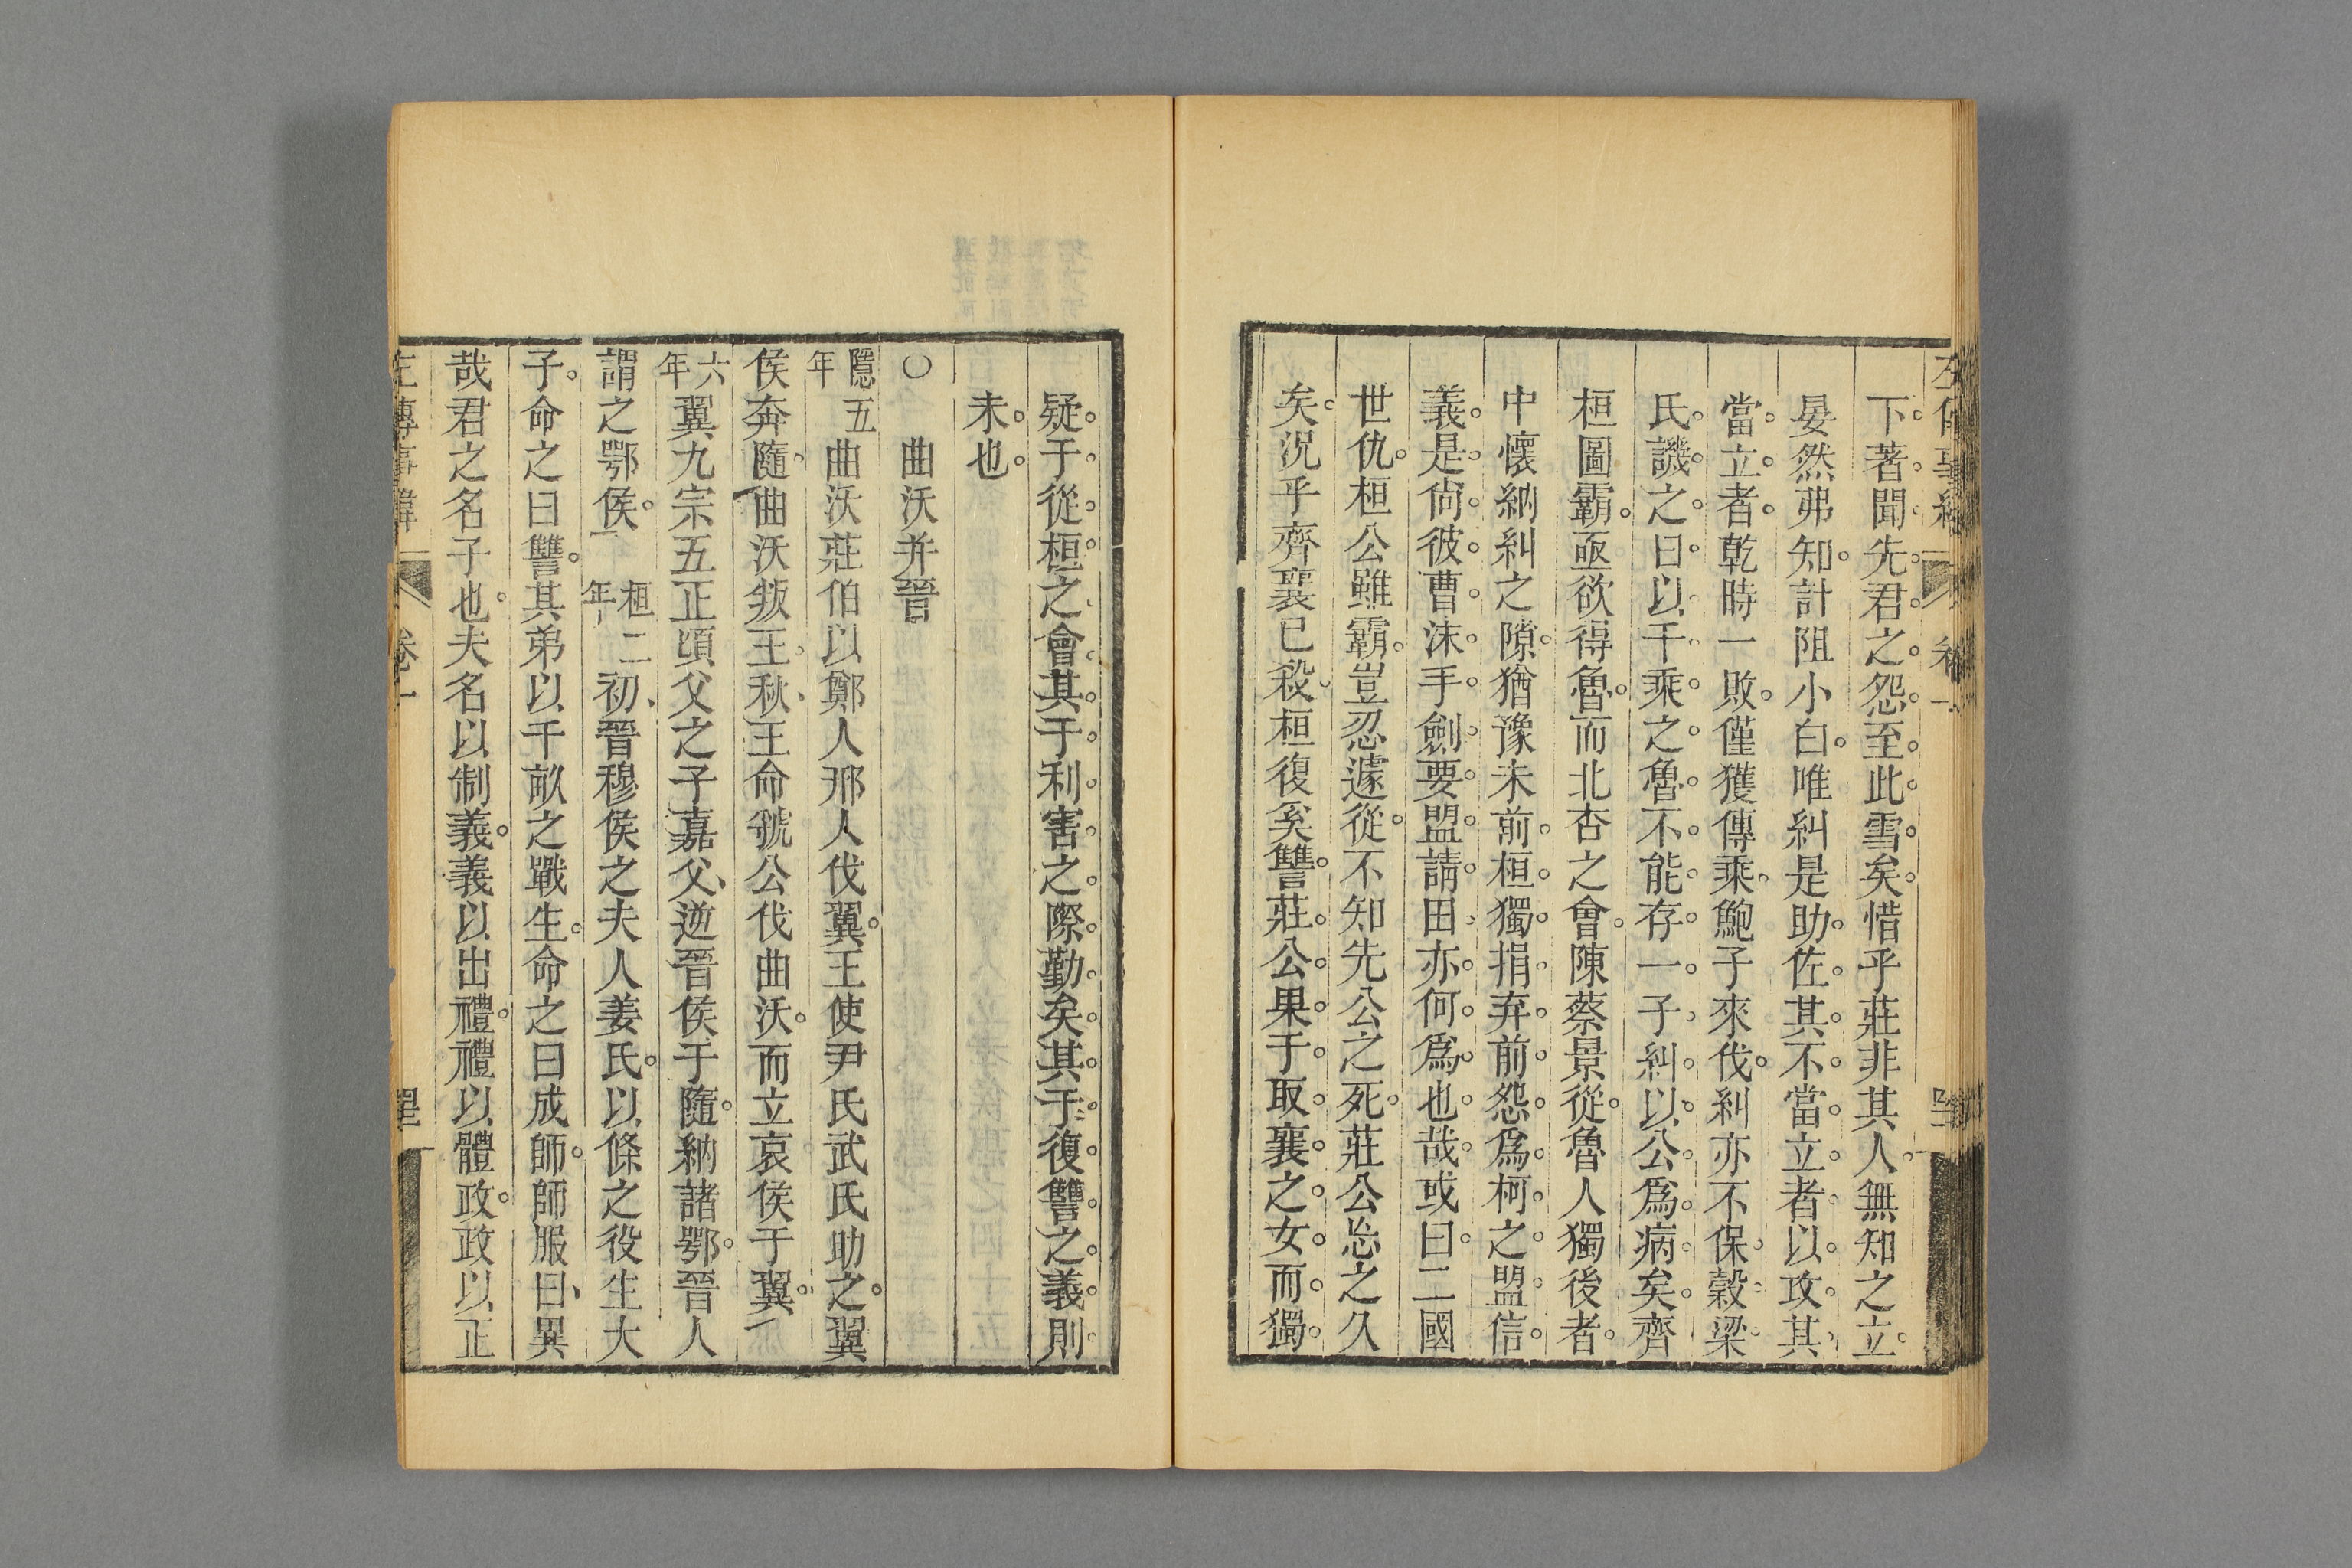 下著聞先君之怨至此雪矣惜乎莊非其人無知之立
晏然弗知計阻小白唯糾是助佐其不當立者以攻其
當立者乾時一敗僅獲傳乘鮑子來伐糾亦不保穀梁
氏譏之曰以千乘之魯不能存一子糾以公爲病矣齊
桓圖霸亟欲得魯而北杏之會陳蔡景從魯人獨後者
中懷納糾之隙猶豫未前桓獨捐弃前怨爲柯之盟信
義是尙彼曹沫手劍要盟請田亦何爲也哉或曰二國
世仇桓公雖霸豈忍遽從不知先公之死莊公忘之久
矣況乎齊襄已殺桓復奚讐莊公果于取襄之女而獨
疑于從桓之會其于利害之際勤矣其于復讐之義則
未也
〇曲沃并晉
隱五年曲沃莊伯以鄭人邢人伐翼王使尹氏武氏助之翼
侯奔隨曲沃叛王秋王命虢公伐曲沃而立哀侯于翼
六年翼九宗五正頃父之子嘉父逆晉侯于隨納諸鄂晉人
謂之鄂侯桓二年初晉穆侯之夫人姜氏以條之役生大
子命之曰讐其弟以千畝之戰生命之曰成師師服曰異
哉君之名子也夫名以制義義以出禮禮以體政政以正
左傳事緯 卷一